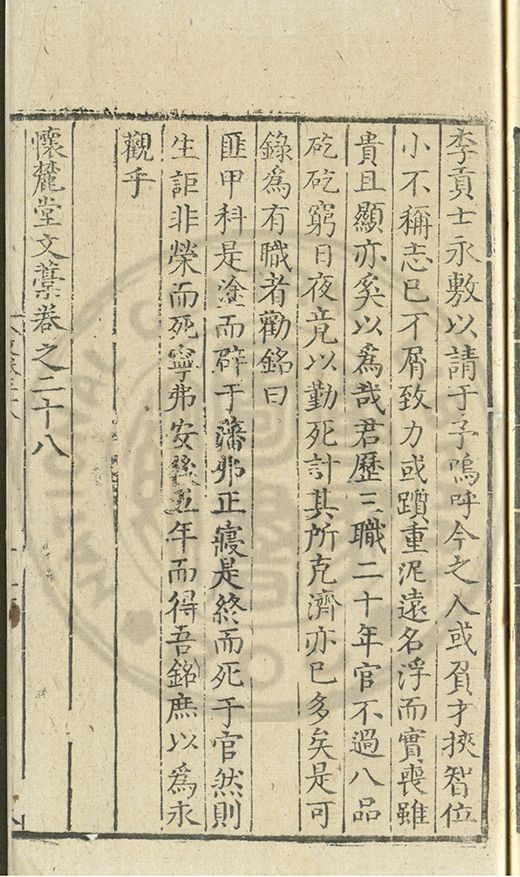 李貢士永敷以請于予嗚呼今之人或負才挾智位
小不稱志已不屑致力或躋重泥遠名浮而實喪雖
貴且顯亦奚以爲哉君歷三職二十年官不過八品
矻矻窮日夜竟以勤死計其所克濟亦已多矣是可
錄爲有職者勸銘曰
匪甲科是塗而辟于藩弗正寢是終而死于官然則
生詎非榮而死寧弗安後五年而得吾銘庶以爲永
觀乎
懷麓堂文藁卷之二十八